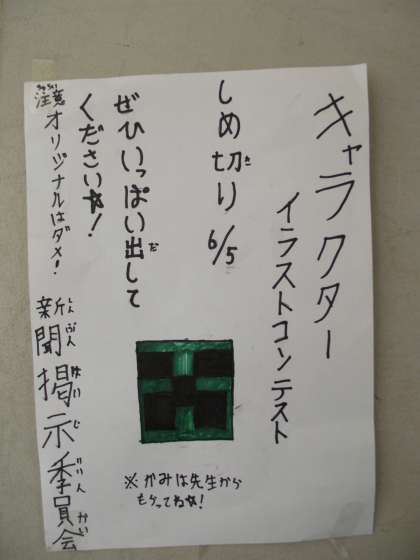 キャラクター
イラストコンテスト
しめ切り 6/5
ぜひいっぱい出して
ください☆!
注意 オリジナルはダメ!
新聞掲示委員会
※かみは先生から
もらってね☆!